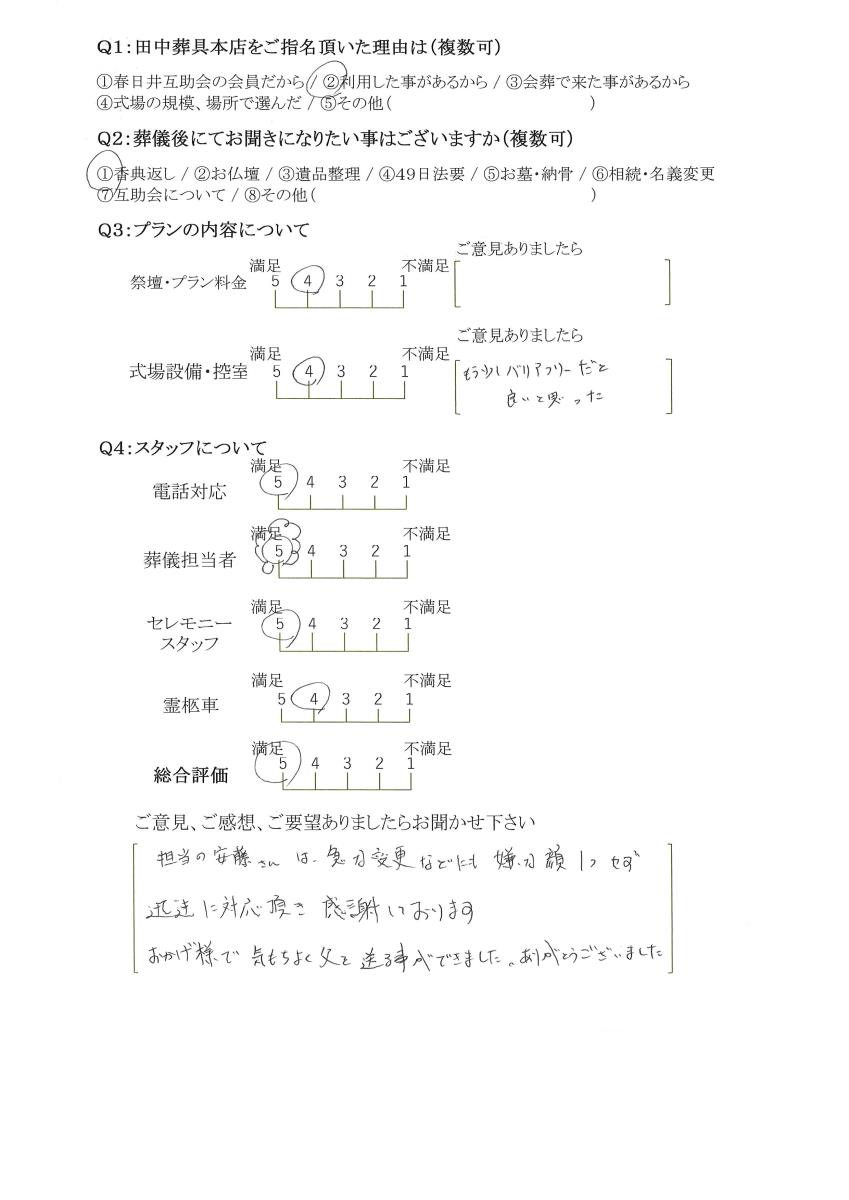 Q1：田中葬具本店をご指名頂いた理由は（複数可）
①春日井互助会の会員だから / ②利用した事があるから / ③会葬で来た事があるから
④式場の規模、場所で選んだ / ⑤その他（　　　）
Q2：葬儀後にてお聞きになりたい事はございますか（複数可）
①香典返し / ②お仏壇 / ③遺品整理 / ④49日法要 / ⑤お墓・納骨 / ⑥相続・名義変更
⑦互助会について / ⑧その他（　　　）
Q3：プランの内容について
ご意見ありましたら
満足 不満足
祭壇・プラン料金 5 4 3 2 1
ご意見ありましたら
満足 不満足
式場設備・控室 5 4 3 2 1
もう少しバリアフリーだと
良いと思った
Q4：スタッフについて
満足 不満足
電話対応 5 4 3 2 1
満足 不満足
葬儀担当者 5 4 3 2 1
満足 不満足
セレモニー 5 4 3 2 1
スタッフ
満足 不満足
霊柩車 5 4 3 2 1
満足 不満足
総合評価 5 4 3 2 1
ご意見、ご感想、ご要望ありましたらお聞かせ下さい
担当の安藤さんは、急な変更などにも嫌な顔1つせず
迅速に対応頂き感謝しております
おかげ様で気もちよく父を送る事ができました。ありがとうございました